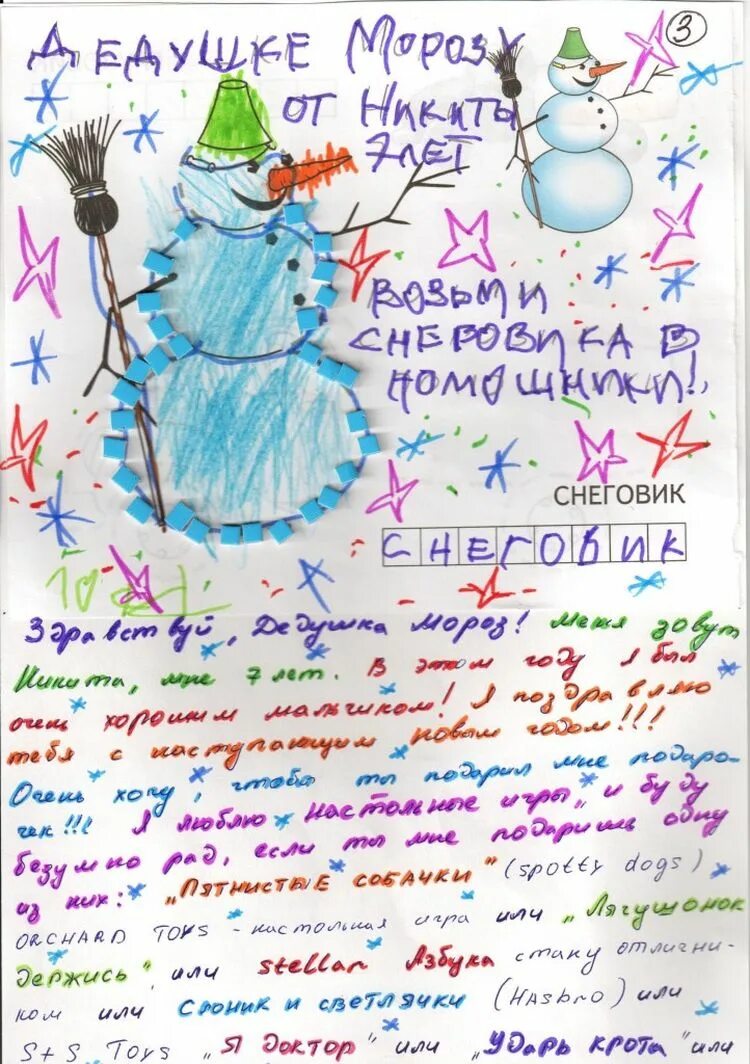 Дедушке Морозу
3
от Никиты
7 лет
возьми
снеговика в
помощники!
СНЕГОВИК
СНЕГОВИК
Здравствуй, Дедушка Мороз! Меня зовут
Никита, мне 7 лет. В этом году я был
очень хорошим мальчиком! Я поздравляю
тебя с наступающим новым годом!!!
Очень хочу, чтобы ты подарил мне подаро-
чек!!! Я люблю настольные игры, и буду
безумно рад, если ты мне подаришь одну
из них: "Пятнистые собачки" (spotty dogs)
ORCHARD TOYS - настольная игра или "Лягушонок
держись", или stellar Азбука стану отлични-
ком или Слоник и светлячки (Hasbro) или
S+S Toys "Я доктор" или "Ударь крота" или